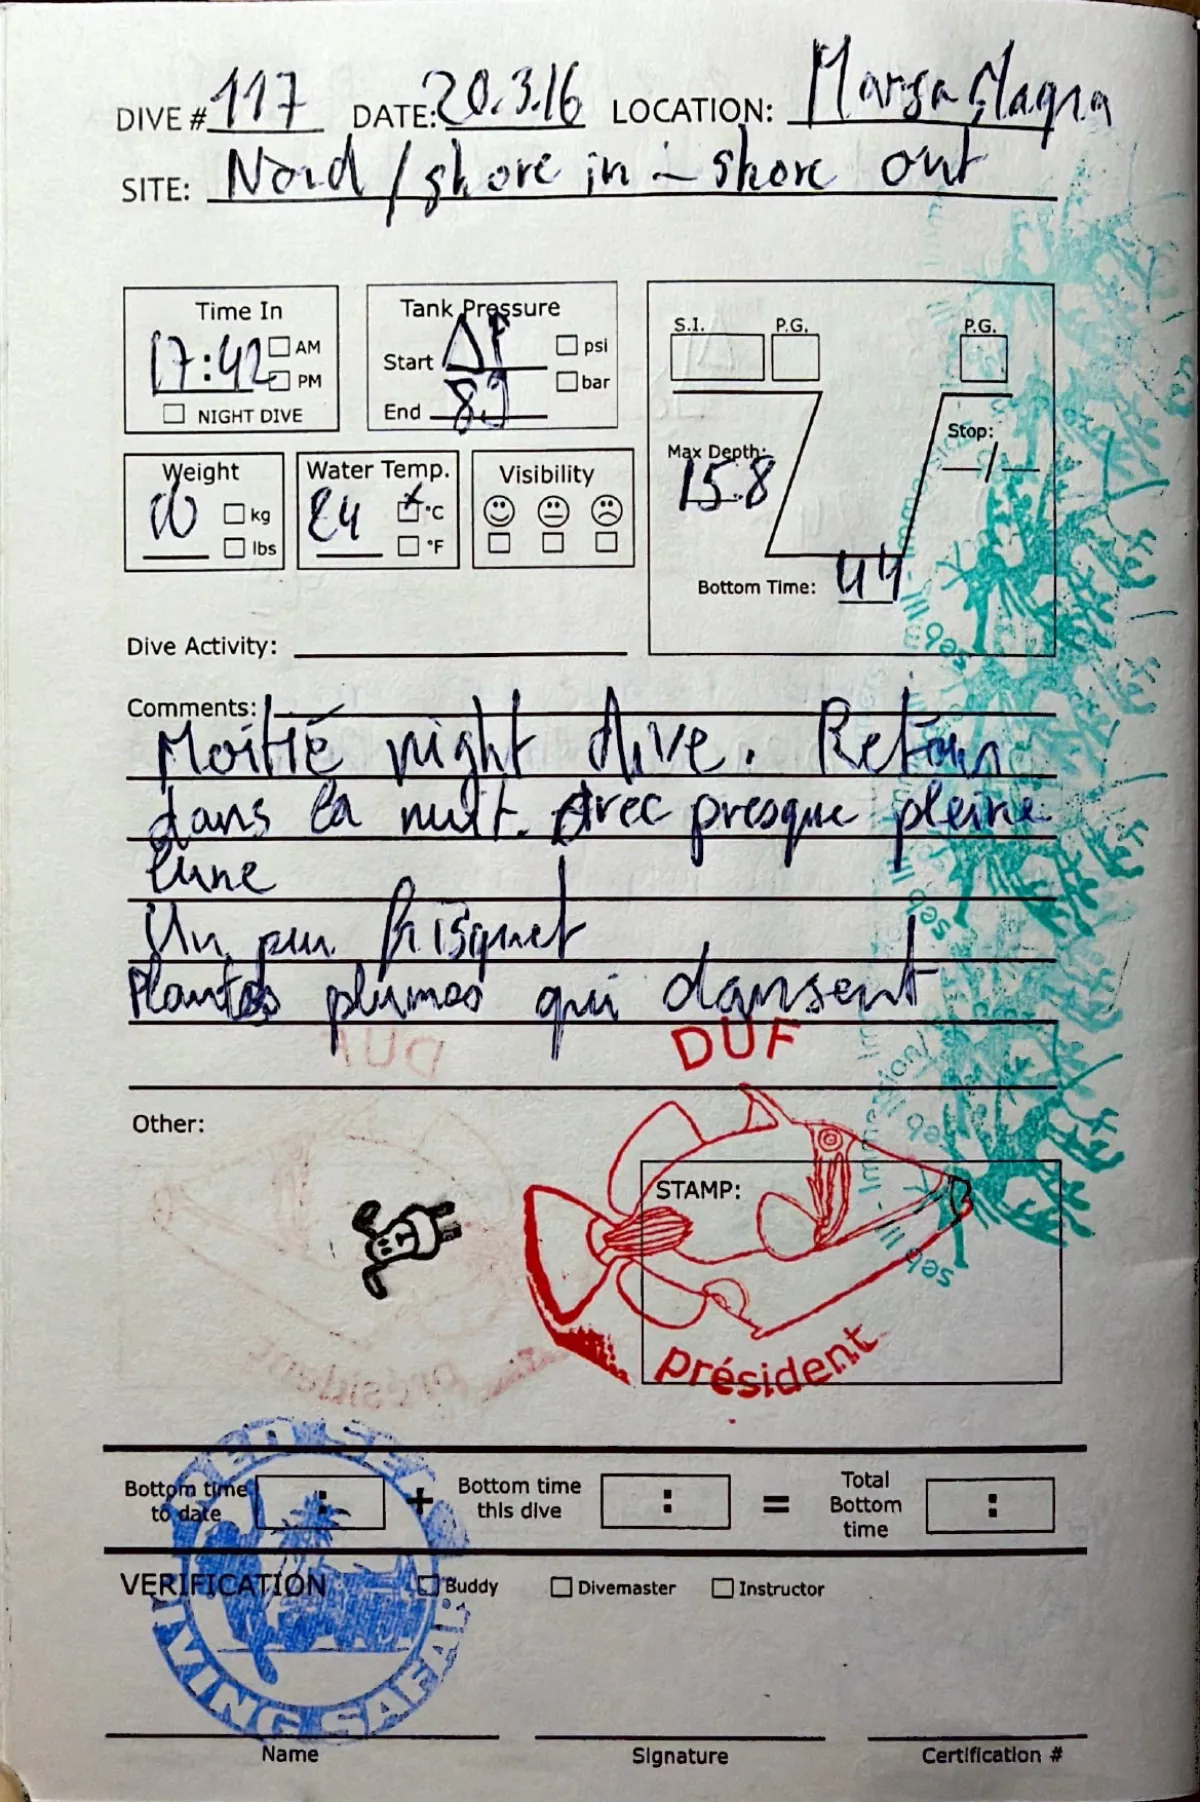 DIVE # 117 DATE: 20.3.16 LOCATION: Marsa
SITE: Nord / shore in - shore out
Time In
17:42 AM
PM
NIGHT DIVE
Tank Pressure
Start ΔP psi
End 89 bar
S.I. P.G. P.G.
Max Depth:
15.8
Stop:
Bottom Time: 44
Weight
kg
lbs
Water Temp.
24 °C
°F
Visibility
Dive Activity:
Comments:
Moitié night dive. Retour
dans la nuit. Avec presque pleine
lune
Un peu frisquet
Plantes plumes qui dansent
DUF
Other:
STAMP:
président
Bottom time
to date
+
Bottom time
this dive
=
Total
Bottom
time
VERIFICATION Buddy Divemaster Instructor
DIVING SAFARI
Name Signature Certification #